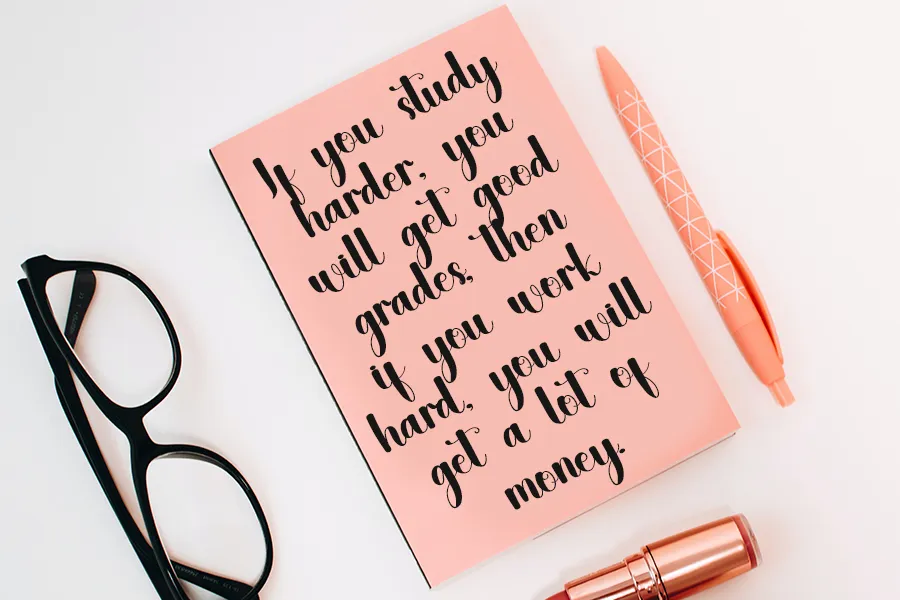 If you study
harder, you
will get good
grades, then
if you work
hard, you will
get a lot of
money.